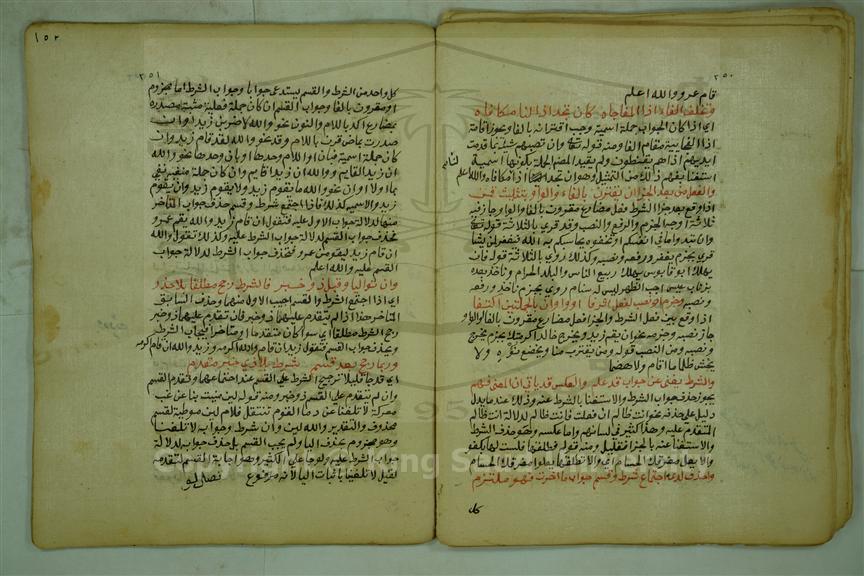 ٢٥٠
قام عمرو والله اعلم
وتخلف الفاء اذا المفاجاه كان تجد اذا لنا مكافاه
اي اذا كان الجواب جملة اسمية وجب اقترانه بالفا ويجوز اقامة
اذا الفجايية مقام الفا ومنه قوله تعالى وان تصبهم سيئة بما قدمت
ايديهم اذا هم يقنطون ولم يقيد المصنف الجملة بكونها اسمية
استغنا بفهم ذلك من التمثيل وهو ان تجد اذا لنا مكافاه والله اعلم
والفعل من بعد الجزا ان يقترن بالفاء والواو بتثليث قمن
اذا وقع بعد جزا الشرط فعل مضارع مقرون بالفا والواو جاز فيه
ثلاثة اوجه الجزم والرفع والنصب وقد قري بالثلاثة قوله تعالى
وان تبدوا ما في انفسكم او تخفوه يحاسبكم به الله فيغفر لمن يشا
قري بجزم يغفر ورفعه ونصبه وكذلك روي بالثلاثة قوله فان
يهلك ابو قابوس يهلك ربيع الناس والبلد الحرام وناخذ بعده
بذناب عيس اجب الظهر ليس له سنام روي بجزم ناخذ ورفعه
ونصبه وجزم او نصب لفعل اثر فا او واو ان بالجملتين اكتنفا
اذا وقع بين فعل الشرط والجزا فعل مضارع مقرون بالفا او الواو
جاز نصبه وجزمه نحو ان يقم زيد ويخرج خالد اكرمك بجزم يخرج
ونصبه ومن النصب قوله ومن يقترب منا ويخضع نؤوه ولا
يخش ظلما ما اقام ولا هضما
والشرط يغني عن جواب قد علم والعكس قد ياتي ان المعنى فهم
يجوز حذف جواب الشرط والاستغنا بالشرط عنه وذلك عند ما يدل
دليل على حذفه نحو انت ظالم ان فعلت فانت ظالم لدلالة انت ظالم
المتقدم عليه وهذا كثير في لسانهم واما عكسه وهو حذف الشرط
والاستغنا عنه بالجزا فقليل ومنه قوله فطلقها فلست لها بكفؤ
والا يعل مفرقك الحسام اي والا تطلقها يعلو مفرقك الحسام
واحذف لدى اجتماع شرط وقسم جواب ما اخرت فهو ملتزم
كل
١٥٢
٢٥١
كل واحد من الشرط والقسم يستدعي جوابا وجواب الشرط اما مجزوم
او مقرون بالفا وجواب القسم ان كان جملة فعلية مثبتة مصدرة
بمضارع اكد باللام والنون نحو والله لاضربن زيدا وان
صدرت بماض قرن باللام وقد نحو والله لقد قام زيد وان
كان جملة اسمية فبان واللام وحدها او بان وحدها نحو والله
ان زيدا لقايم ووالله ان زيدا قايم وان كان جملة منفية نفي
بما او لا او ان نحو والله ما يقوم زيد ولا يقوم زيد وان يقوم
زيد والاسمية كذلك فاذا اجتمع شرط وقسم حذف جواب المتاخر
منهما لدلالة جواب الاول عليه فتقول ان قام زيد والله يقم عمرو
فحذف جواب القسم لدلالة جواب الشرط عليه وكذلك تقول والله
ان قام زيد ليقومن عمرو فحذف جواب الشرط لدلالة جواب
القسم عليه والله اعلم
وان تواليا وقبل ذو خبر فالشرط رجح مطلقا بلا حذر
اي اذا اجتمع الشرط والقسم اجيب الاول منهما وحذف السابق
المتاخر هذا اذا لم يتقدم عليهما ذو خبر فان تقدم عليهما ذو خبر
رجح الشرط مطلقا اي سوا كان متقدما او متاخرا فيجاب الشرط
ويحذف جواب القسم فتقول زيد ان قام والله اكرمه وزيد والله ان قام اكرمه
وربما رجح بعد قسم شرط بلا ذي خبر مقدم
اي قد جا قليلا ترجيح الشرط على القسم عند اجتماعهما وتقدم القسم
وان لم يتقدم على القسم ذو خبر ومنه قوله لين منيت بنا عن غب
معركة لا تلفنا عن دما القوم ننتفل فلام لين موطية لقسم
محذوف والتقدير والله لين وان شرط وجوابه لا تلفنا
وهو مجزوم بحذف اليا ولم يجب القسم بل حذف جوابه لدلالة
جواب الشرط عليه ولو جا على الكثير وهو اجابة القسم لتقدمه
لقيل لا تلفينا باثبات اليا لانه مرفوع فصل لو